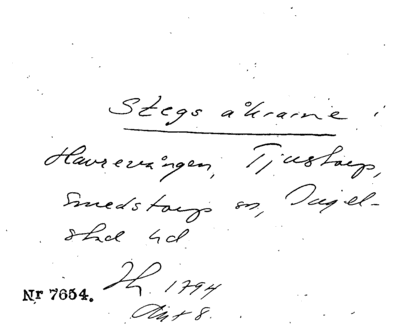 Stegs åkrarne i
Havrevången, Tjustorp,
Smedstorps sn, Ingel-
stad hd
Nr 7654. 1794
Akt 8.